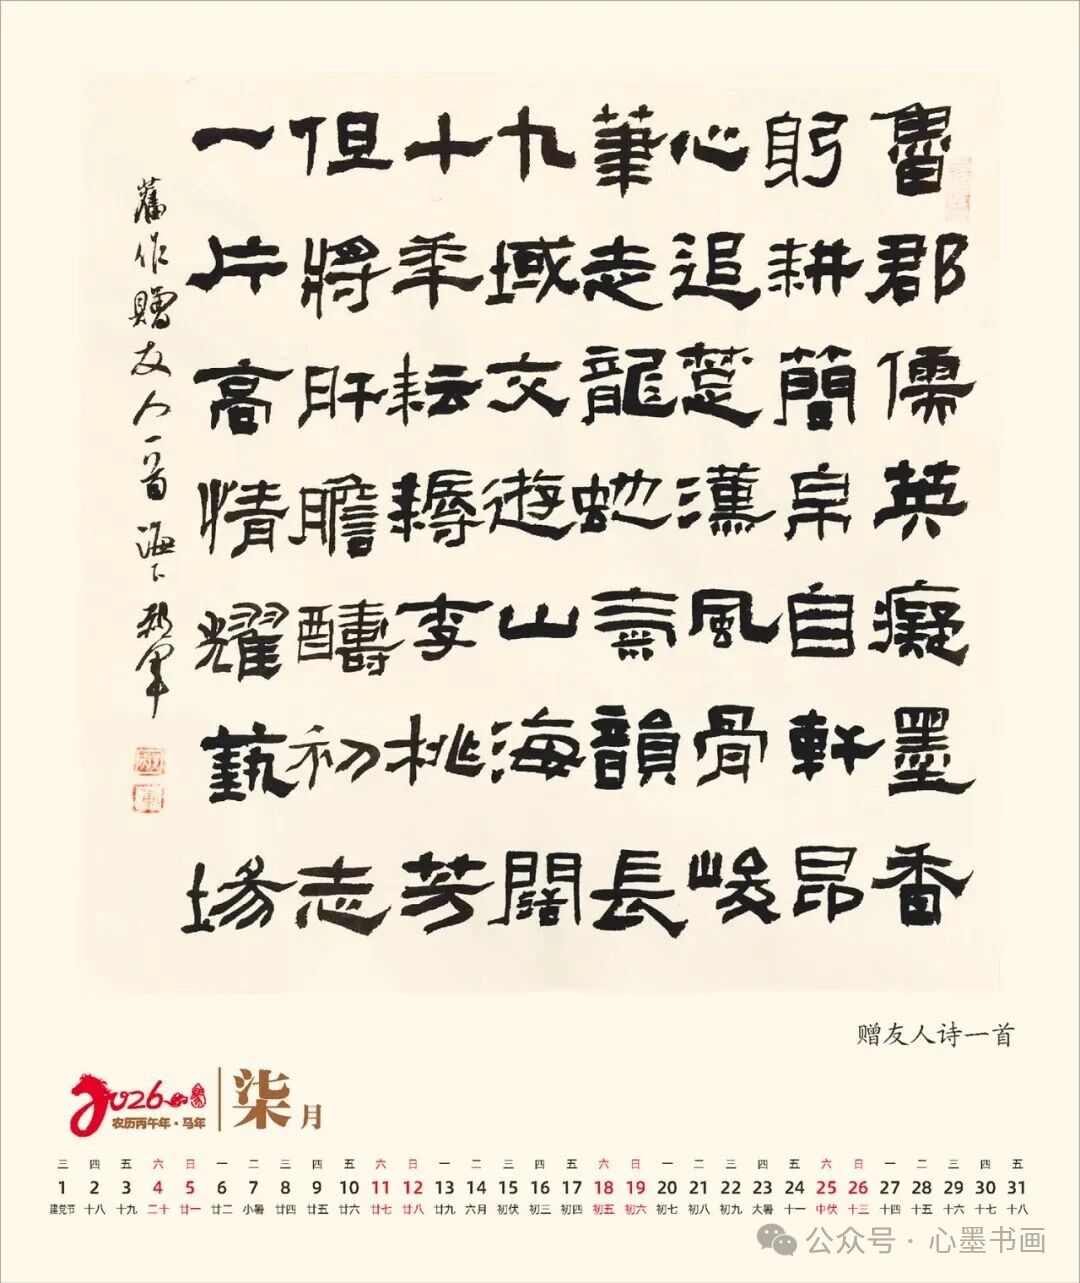 魯郡儒英癡墨香
躬耕簡帛自軒昂
心追楚漢風骨峻
筆走龍蛇氣韻長
九域交遊山海闊
十年耘耨李桃芳
但將肝膽酬初志
一片高情耀藝場
舊作贈友人一首
赠友人诗一首
2026
农历丙午年·马年
柒月
三 四 五 六 日 一 二 三 四 五 六 日 一 二 三 四 五 六 日 一 二 三 四 五 六 日 一 二 三 四 五
1 2 3 4 5 6 7 8 9 10 11 12 13 14 15 16 17 18 19 20 21 22 23 24 25 26 27 28 29 30 31
建党节 十八 十九 二十 廿一 廿二 小暑 廿四 廿五 廿六 廿七 廿八 廿九 六月 初伏 初三 初四 初五 初六 初七 初八 初九 大暑 十一 中伏 十三 十四 十五 十六 十七 十八
公众号·心墨书画